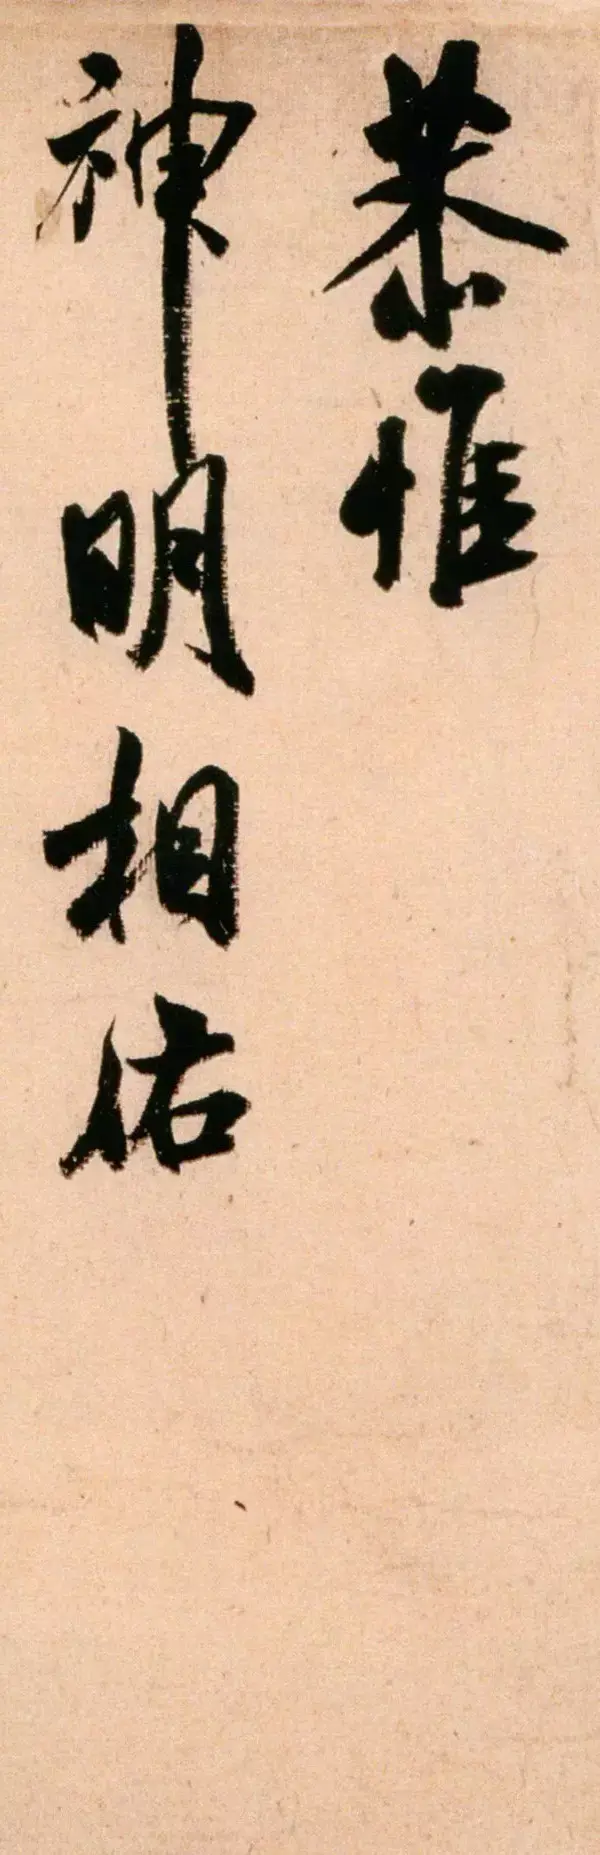 恭惟
神明相佑